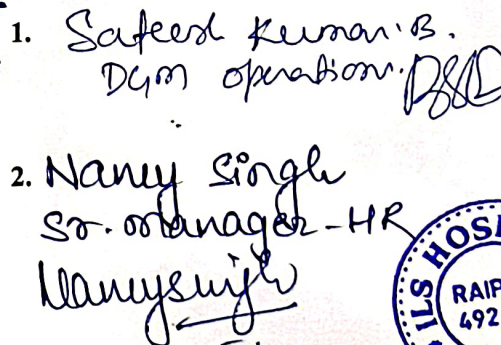 1. Sateesh Kumar. B.
DGM operation.
2. Nancy Singh
Sr. Manager - HR
Nancysingh
ILS HOS
RAIP
492